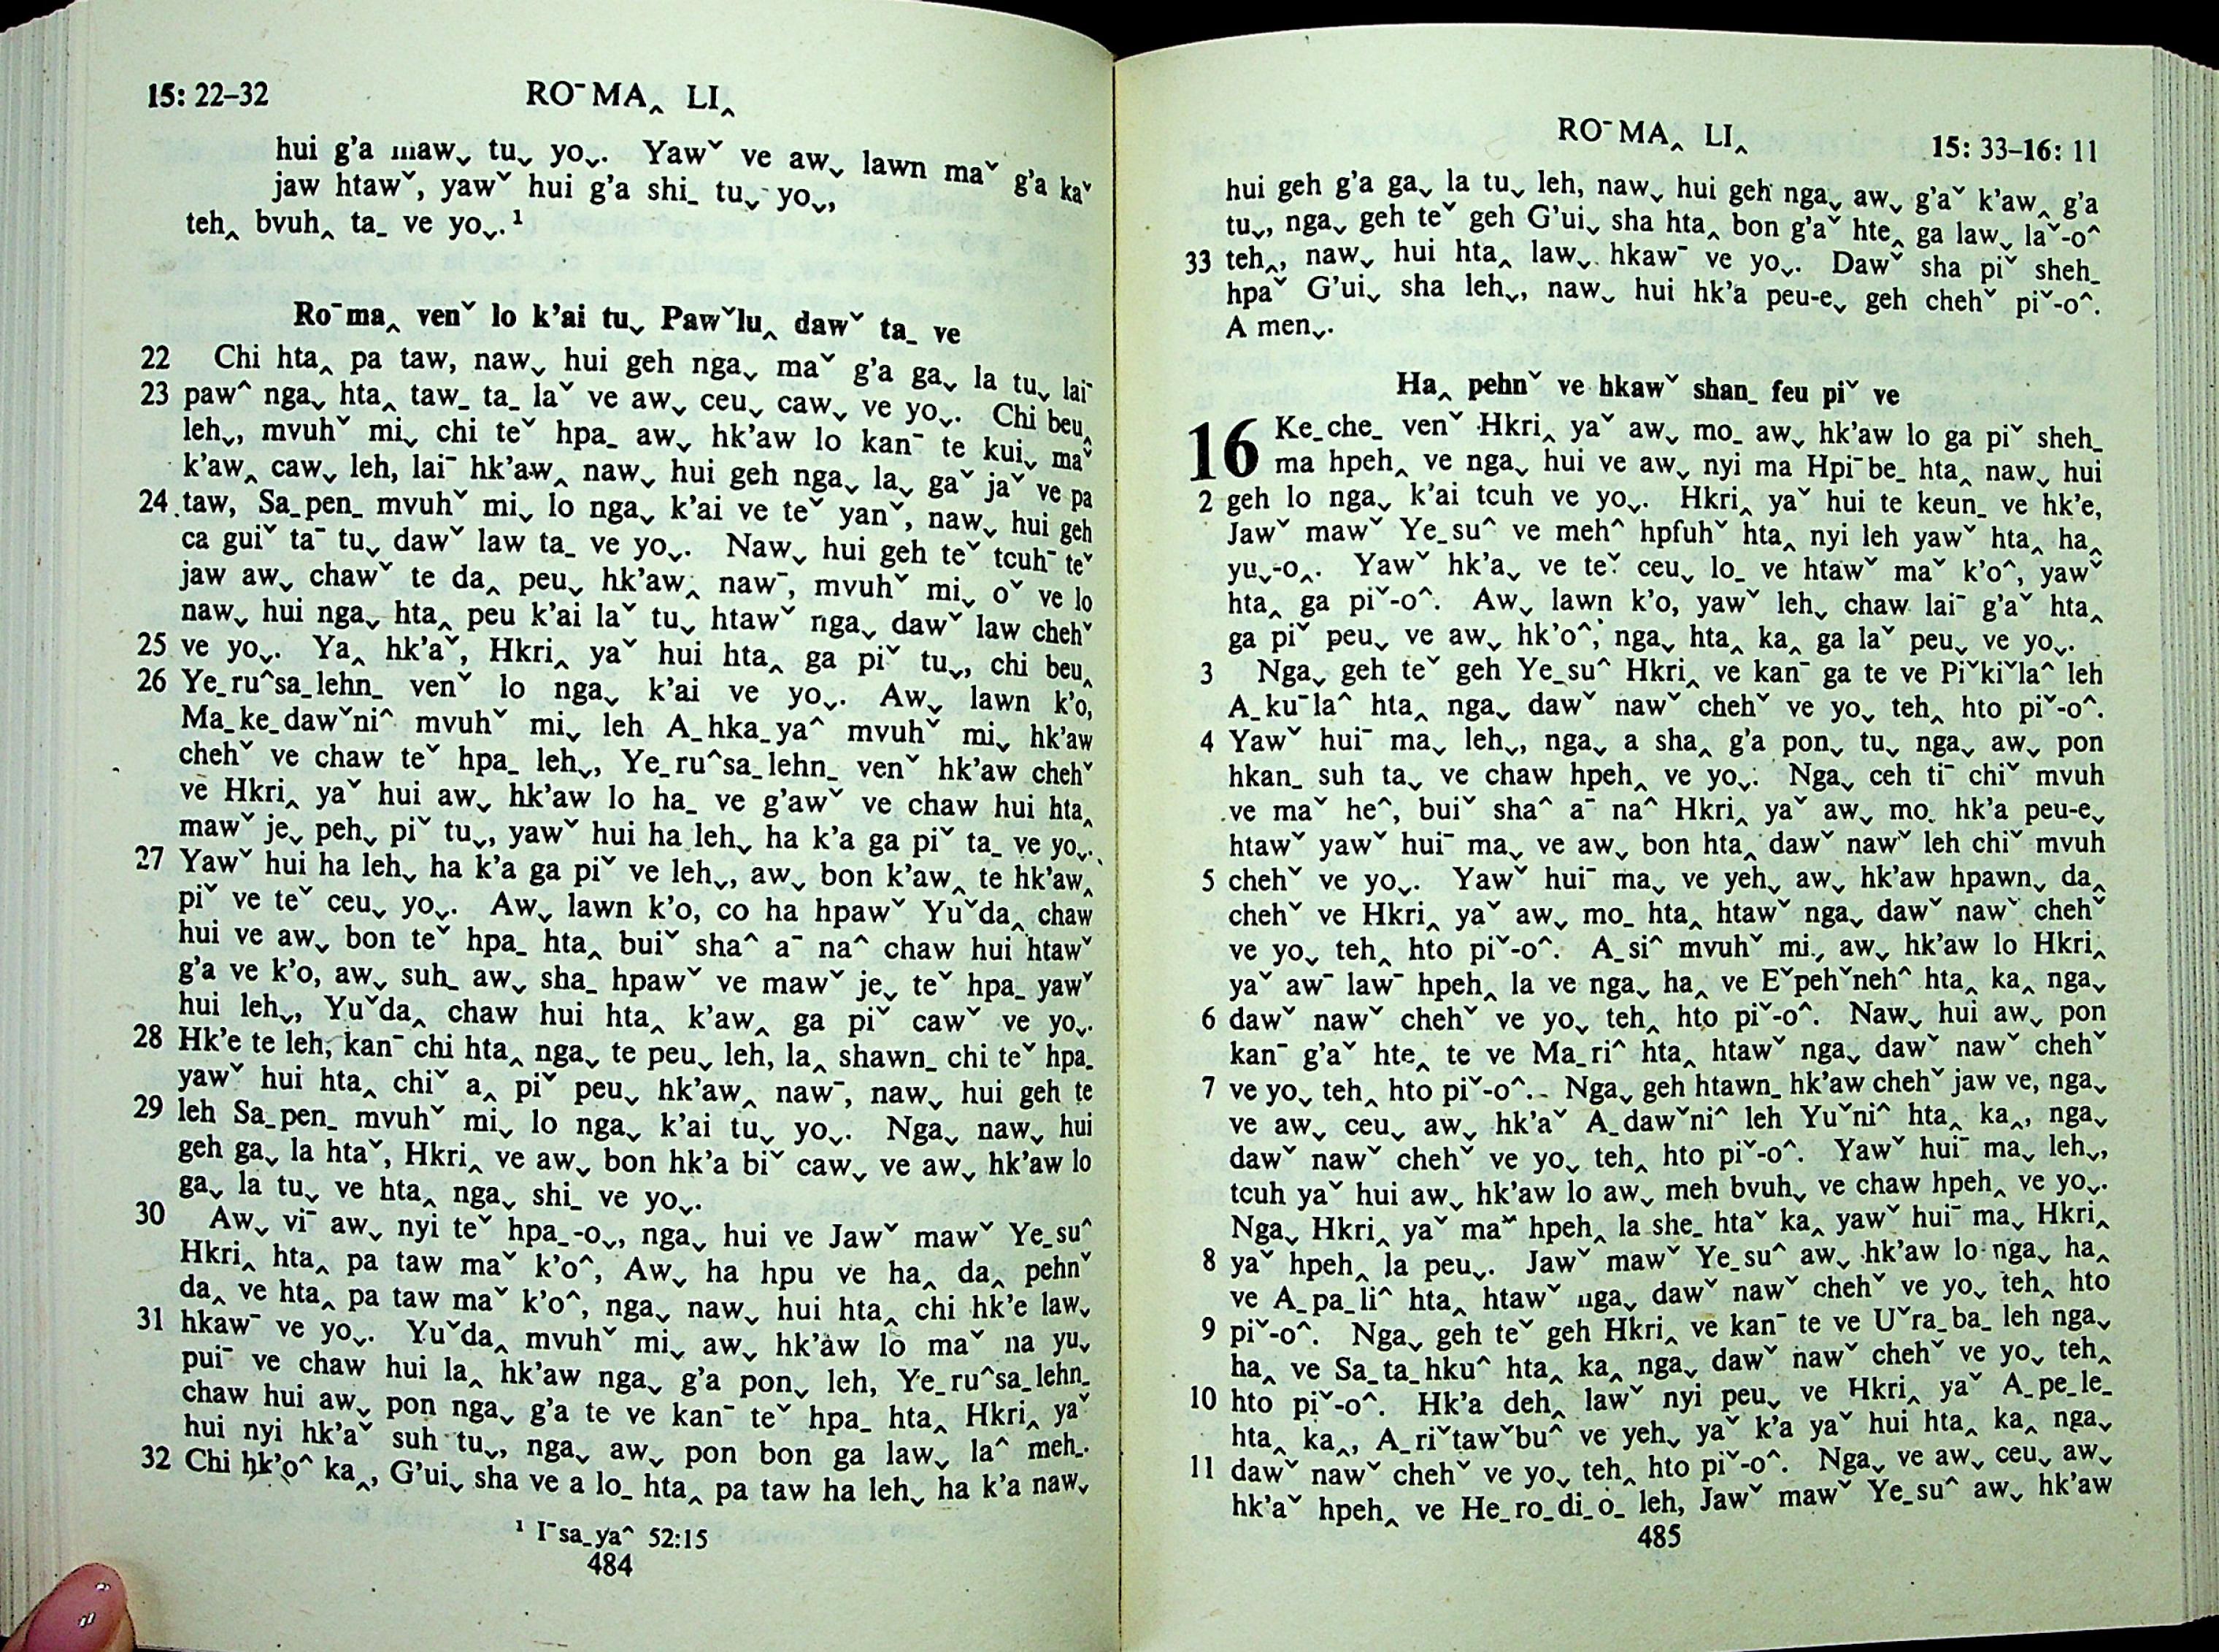 15: 22–32
ROˉMA‸ LI‸
hui g’a maw˯ tu˯ yo˯. Yawˇ ve aw˯ lawn maˇ g’a kaˇ
jaw htawˇ, yawˇ hui g’a shi_ tu˯ yo˯,
teh‸ bvuh‸ ta_ ve yo˯.¹
Roˉma‸ venˇ lo k’ai tu˯ Pawˇlu‸ dawˇ ta_ ve
22 Chi hta‸ pa taw, naw˯ hui geh nga˯ maˇ g’a ga˯ la tu˯ laiˉ
23 paw^ nga˯ hta‸ taw_ ta_ laˇ ve aw˯ ceu˯ caw˯ ve yo˯. Chi beu‸
leh˯, mvuhˇ mi˯ chi teˇ hpa_ aw˯ hk’aw lo kanˉ te kui˯ maˇ
k’aw‸ caw˯ leh, laiˉ hk’aw‸ naw˯ hui geh nga˯ la˯ gaˇ jaˇ ve pa
24 taw, Sa_pen_ mvuhˇ mi˯ lo nga˯ k’ai ve teˇ yanˇ, naw˯ hui geh
ca guiˇ taˉ tu˯ dawˇ law ta_ ve yo˯. Naw˯ hui geh teˇ tcuhˉ teˇ
jaw aw˯ chawˇ te da‸ peu˯ hk’aw‸ nawˉ, mvuhˇ mi˯ oˇ ve lo
naw˯ hui nga˯ hta‸ peu k’ai laˇ tu˯ htawˇ nga˯ dawˇ law chehˇ
25 ve yo˯. Ya‸ hk’aˇ, Hkri‸ yaˇ hui hta‸ ga piˇ tu˯, chi beu‸
26 Ye_ru^sa_lehn_ venˇ lo nga˯ k’ai ve yo˯. Aw˯ lawn k’o,
Ma_ke_dawˇni^ mvuhˇ mi˯ leh A_hka_ya^ mvuhˇ mi˯ hk’aw
chehˇ ve chaw teˇ hpa_ leh˯, Ye_ru^sa_lehn_ venˇ hk’aw chehˇ
ve Hkri‸ yaˇ hui aw˯ hk’aw lo ha_ ve g’awˇ ve chaw hui hta‸
mawˇ je˯ peh˯ piˇ tu˯, yawˇ hui ha leh˯ ha k’a ga piˇ ta_ ve yo˯.
27 Yawˇ hui ha leh˯ ha k’a ga piˇ ve leh˯, aw˯ bon k’aw‸ te hk’aw‸
piˇ ve teˇ ceu˯ yo˯. Aw˯ lawn k’o, co ha hpawˇ Yuˇda‸ chaw
hui ve aw˯ bon teˇ hpa_ hta‸ buiˇ sha^ aˉ na^ chaw hui htawˇ
g’a ve k’o, aw˯ suh_ aw˯ sha_ hpawˇ ve mawˇ je˯ teˇ hpa_ yawˇ
hui leh˯, Yuˇda‸ chaw hui hta‸ k’aw‸ ga piˇ cawˇ ve yo˯.
28 Hk’e te leh, kanˉ chi hta‸ nga˯ te peu˯ leh, la‸ shawn_ chi teˇ hpa_
yawˇ hui hta‸ chiˇ a‸ piˇ peu˯ hk’aw‸ nawˉ, naw˯ hui geh te
29 leh Sa_pen_ mvuhˇ mi˯ lo nga˯ k’ai tu˯ yo˯. Nga˯ naw˯ hui
geh ga˯ la htaˇ, Hkri‸ ve aw˯ bon hk’a biˇ caw˯ ve aw˯ hk’aw lo
ga˯ la tu˯ ve hta‸ nga˯ shi_ ve yo˯.
30 Aw˯ viˉ aw˯ nyi teˇ hpa_-o˯, nga˯ hui ve Jawˇ mawˇ Ye_su^
Hkri‸ hta‸ pa taw maˇ k’o^, Aw˯ ha hpu ve ha‸ da‸ pehnˇ
da‸ ve hta‸ pa taw maˇ k’o^, nga˯ naw˯ hui hta‸ chi hk’e law˯
31 hkawˉ ve yo˯. Yuˇda‸ mvuhˇ mi˯ aw˯ hk’aw lo maˇ na yu˯
puiˉ ve chaw hui la‸ hk’aw nga˯ g’a pon˯ leh, Ye_ru^sa_lehn_
chaw hui aw˯ pon nga˯ g’a te ve kanˉ teˇ hpa_ hta‸ Hkri‸ yaˇ
hui nyi hk’aˇ suh tu˯, nga˯ aw˯ pon bon ga law˯ la^ meh_.
32 Chi hk’o^ ka‸, G’ui˯ sha ve a lo_ hta‸ pa taw ha leh˯ ha k’a naw˯
¹ Iˉsa_ya^ 52:15
484
ROˉMA‸ LI‸
15: 33–16: 11
hui geh g’a ga˯ la tu˯ leh, naw˯ hui geh nga˯ aw˯ g’aˇ k’aw‸ g’a
tu˯, nga˯ geh teˇ geh G’ui˯ sha hta‸ bon g’aˇ hte‸ ga law˯ laˇ-o^
33 teh‸, naw˯ hui hta‸ law˯ hkawˉ ve yo˯. Dawˇ sha piˇ sheh_
hpaˇ G’ui˯ sha leh˯, naw˯ hui hk’a peu-e˯ geh chehˇ piˇ-o^.
A men˯.
Ha‸ pehnˇ ve hkawˇ shan_ feu piˇ ve
16 Ke_che_ venˇ Hkri‸ yaˇ aw˯ mo_ aw˯ hk’aw lo ga piˇ sheh_
ma hpeh‸ ve nga˯ hui ve aw˯ nyi ma Hpiˉbe_ hta‸ naw˯ hui
2 geh lo nga˯ k’ai tcuh ve yo˯. Hkri‸ yaˇ hui te keun_ ve hk’e,
Jawˇ mawˇ Ye_su^ ve meh^ hpfuhˇ hta‸ nyi leh yawˇ hta‸ ha‸
yu˯-o‸. Yawˇ hk’a˯ ve teˇ ceu˯ lo_ ve htawˇ maˇ k’o^, yawˇ
hta‸ ga piˇ-o^. Aw˯ lawn k’o, yawˇ leh˯ chaw laiˉ g’aˇ hta‸
ga piˇ peu˯ ve aw˯ hk’o^, nga˯ hta‸ ka‸ ga laˇ peu˯ ve yo˯.
3 Nga˯ geh teˇ geh Ye_su^ Hkri‸ ve kanˉ ga te ve Piˇkiˇla^ leh
A_kuˉla^ hta‸ nga˯ dawˇ nawˇ chehˇ ve yo˯ teh‸ hto piˇ-o^.
4 Yawˇ huiˉ ma˯ leh˯, nga˯ a sha‸ g’a pon˯ tu˯ nga˯ aw˯ pon
hkan_ suh ta˯ ve chaw hpeh‸ ve yo˯. Nga˯ ceh tiˉ chiˇ mvuh
ve maˇ he^, buiˇ sha^ aˉ na^ Hkri‸ yaˇ aw˯ mo_ hk’a peu-e˯
htawˇ yawˇ huiˉ ma˯ ve aw˯ bon hta‸ dawˇ nawˇ leh chiˇ mvuh
5 chehˇ ve yo˯. Yawˇ huiˉ ma˯ ve yeh˯ aw˯ hk’aw hpawn˯ da‸
chehˇ ve Hkri‸ yaˇ aw˯ mo_ hta‸ htawˇ nga˯ dawˇ nawˇ chehˇ
ve yo˯ teh‸ hto piˇ-o^. A_si^ mvuhˇ mi˯ aw˯ hk’aw lo Hkri‸
yaˇ awˉ lawˉ hpeh‸ la ve nga˯ ha‸ ve Eˇpehˇneh^ hta‸ ka‸ nga˯
6 dawˇ nawˇ chehˇ ve yo˯ teh‸ hto piˇ-o^. Naw˯ hui aw˯ pon
kanˉ g’aˇ hte‸ te ve Ma_ri^ hta‸ htawˇ nga˯ dawˇ nawˇ chehˇ
7 ve yo˯ teh‸ hto piˇ-o^. Nga˯ geh htawn_ hk’aw chehˇ jaw ve, nga˯
ve aw˯ ceu˯ aw˯ hk’aˇ A_dawˇni^ leh Yuˇni^ hta‸ ka‸, nga˯
dawˇ nawˇ chehˇ ve yo˯ teh‸ hto piˇ-o^. Yawˇ huiˉ ma˯ leh˯,
tcuh yaˇ hui aw˯ hk’aw lo aw˯ meh bvuh˯ ve chaw hpeh‸ ve yo˯.
Nga˯ Hkri‸ yaˇ maˇ hpeh‸ la she_ htaˇ ka‸ yawˇ huiˉ ma˯ Hkri‸
8 yaˇ hpeh‸ la peu˯. Jawˇ mawˇ Ye_su^ aw˯ hk’aw lo nga˯ ha‸
ve A_pa_li^ hta‸ htawˇ nga˯ dawˇ nawˇ chehˇ ve yo˯ teh‸ hto
9 piˇ-o^. Nga˯ geh teˇ geh Hkri‸ ve kanˉ te ve Uˇra_ba_ leh nga˯
ha‸ ve Sa_ta_hku^ hta‸ ka‸ nga˯ dawˇ nawˇ chehˇ ve yo˯ teh‸
10 hto piˇ-o^. Hk’a deh‸ lawˇ nyi peu˯ ve Hkri‸ yaˇ A_pe_le_
hta‸ ka‸, A_riˇtawˇbu^ ve yeh˯ yaˇ k’a yaˇ hui hta‸ ka‸ nga˯
11 dawˇ nawˇ chehˇ ve yo˯ teh‸ hto piˇ-o^. Nga˯ ve aw˯ ceu˯ aw˯
hk’aˇ hpeh‸ ve He_ro_di_o_ leh, Jawˇ mawˇ Ye_su^ aw˯ hk’aw
485